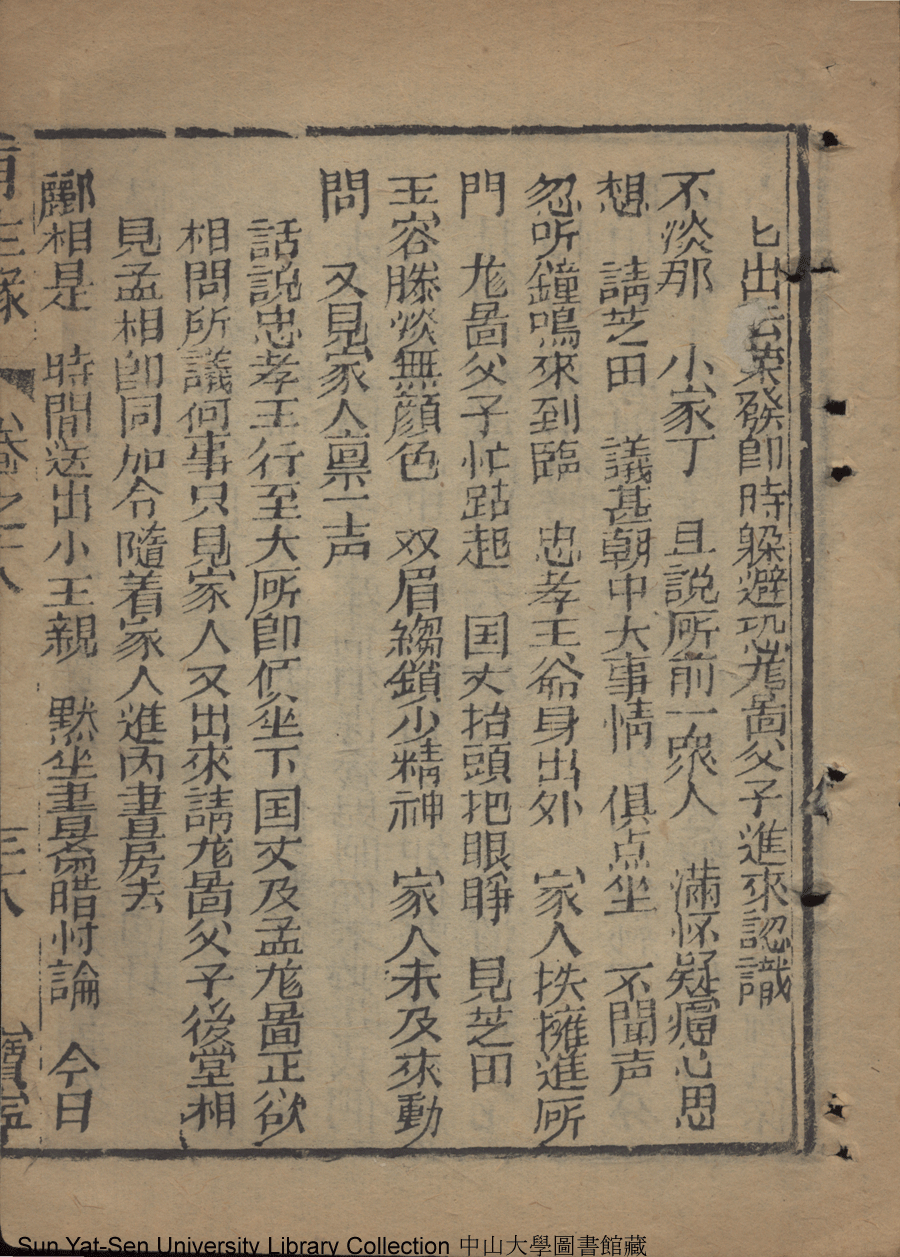 匕出去來發即時躲避恐尨啚父子進來認識
不談那 小家丁 且說所前一衆人 滿怀疑慮心思
想 請芝田 議甚朝中大事情 俱点坐 不聞声
忽听鐘鳴來到臨 忠孝王爺身出外 家人扶擁進所
門 尨啚父子忙跕起 囯丈抬頭把眼睜 見芝田
玉容勝淡無顔色 双眉縐鎖少精神 家人未及來動
問 又見家人禀一声
話說忠孝王行至大所即便坐下囯丈及孟尨啚正欲
相問所議何事只見家人又出來請尨啚父子後堂相
見孟相即同加令隨着家人進内書房去
酈相是 時間送出小王親 默坐書斋暗忖論 今日
再生緣 卷之十八 三十八 寶寧
Sun Yat-Sen University Library Collection 中山大學圖書館藏